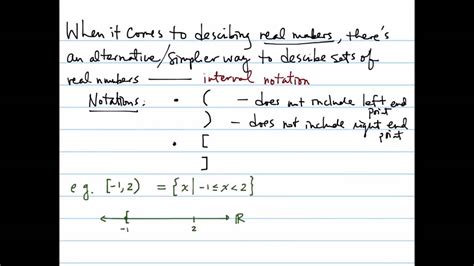 When it comes to describing real numbers, there's
an alternative/simpler way to describe sets of
real numbers —— interval notation
Notations: • ( - does not include left end point
) - does not include right end point
• [
]
e.g. [-1,2) = {x | -1 ≤ x < 2}
-1 2 ℝ